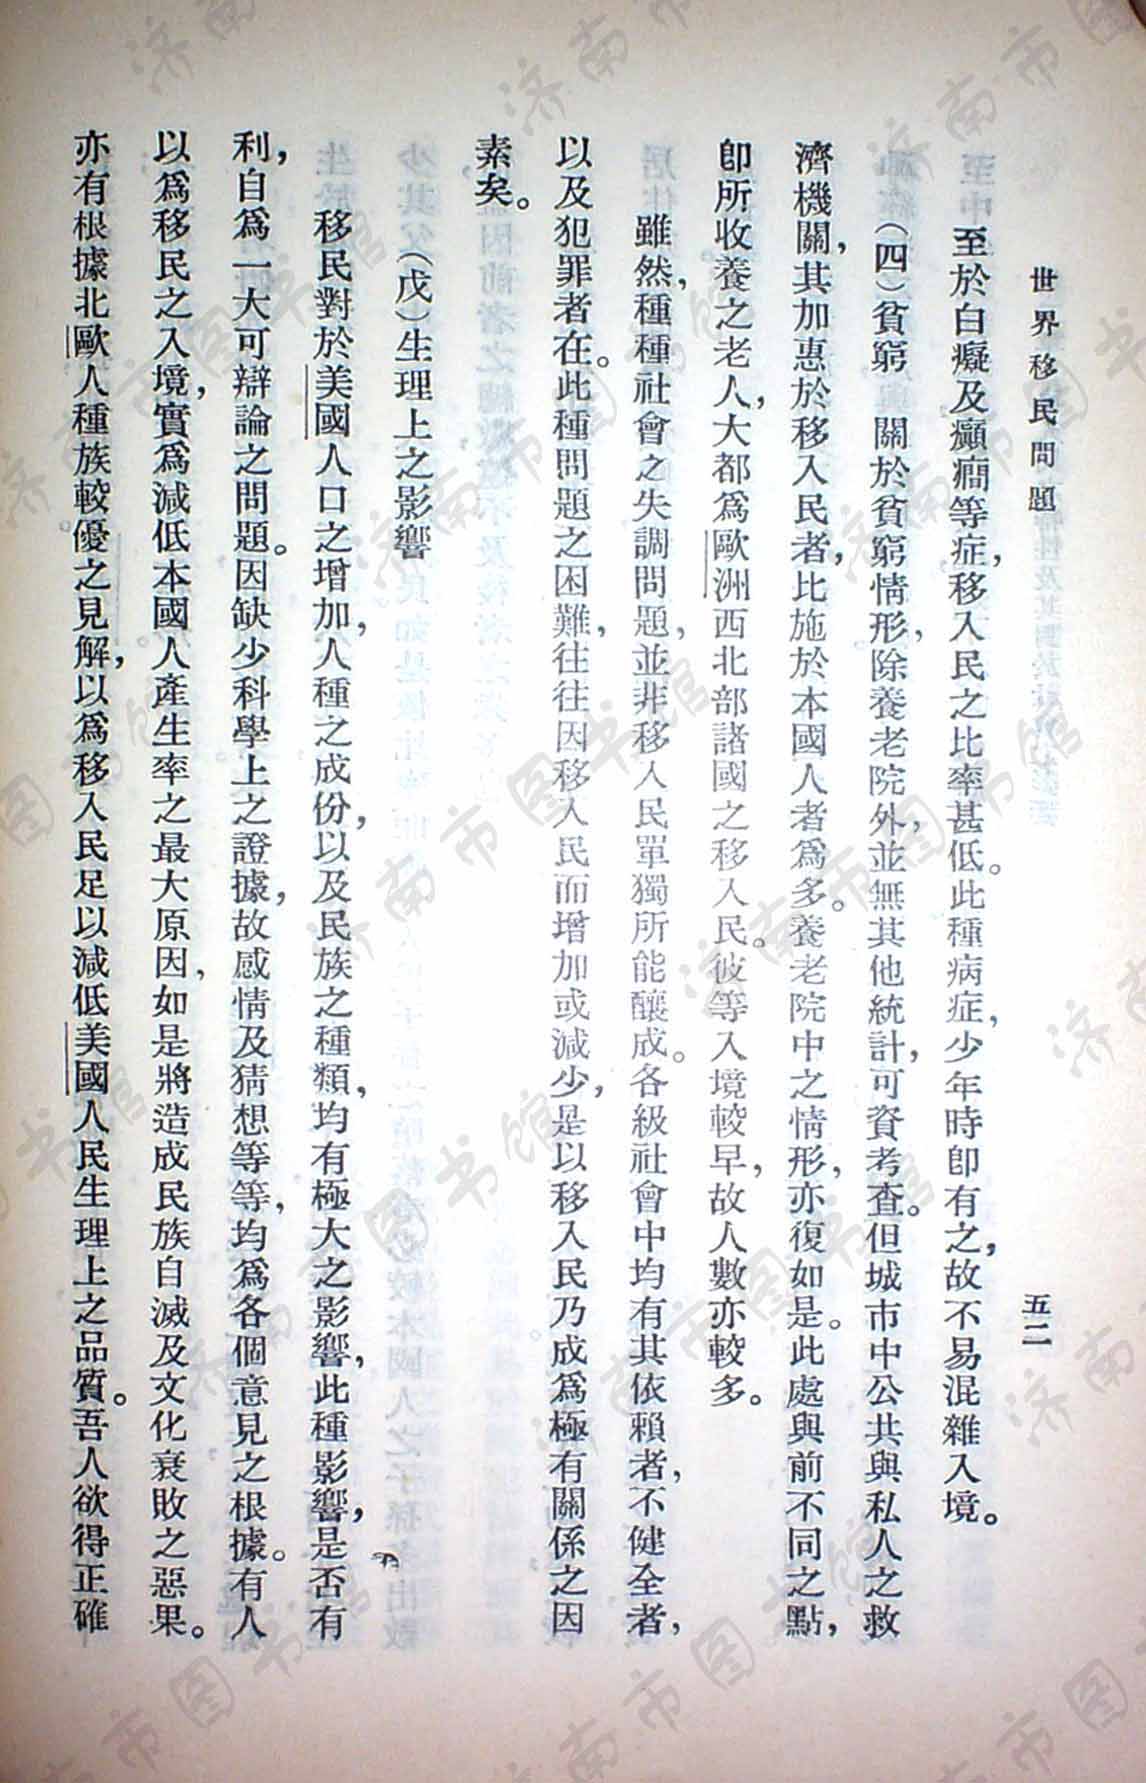 世界移民問題
五二
至於白癡及癲癇等症，移入民之比率甚低。此種病症，少年時即有之，故不易混雜入境。
（四）貧窮　關於貧窮情形，除養老院外，並無其他統計，可資考查。但城市中公共與私人之救
濟機關，其加惠於移入民者，比施於本國人者爲多。養老院中之情形，亦復如是。此處與前不同之點，
即所收養之老人，大都爲歐洲西北部諸國之移入民。彼等入境較早，故人數亦較多。
雖然，種種社會之失調問題，並非移入民單獨所能釀成。各級社會中均有其依賴者，不健全者，
以及犯罪者在。此種問題之困難，往往因移入民而增加或減少，是以移入民乃成爲極有關係之因
素矣。
（戊）生理上之影響
移民對於美國人口之增加，人種之成份，以及民族之種類，均有極大之影響，此種影響，是否有
利，自爲一大可辯論之問題。因缺少科學上之證據，故感情及猜想等等，均爲各個意見之根據。有人
以爲移民之入境，實爲減低本國人產生率之最大原因，如是將造成民族自滅及文化衰敗之惡果。
亦有根據北歐人種族較優之見解，以爲移入民足以減低美國人民生理上之品質。吾人欲得正確
济南市图书馆